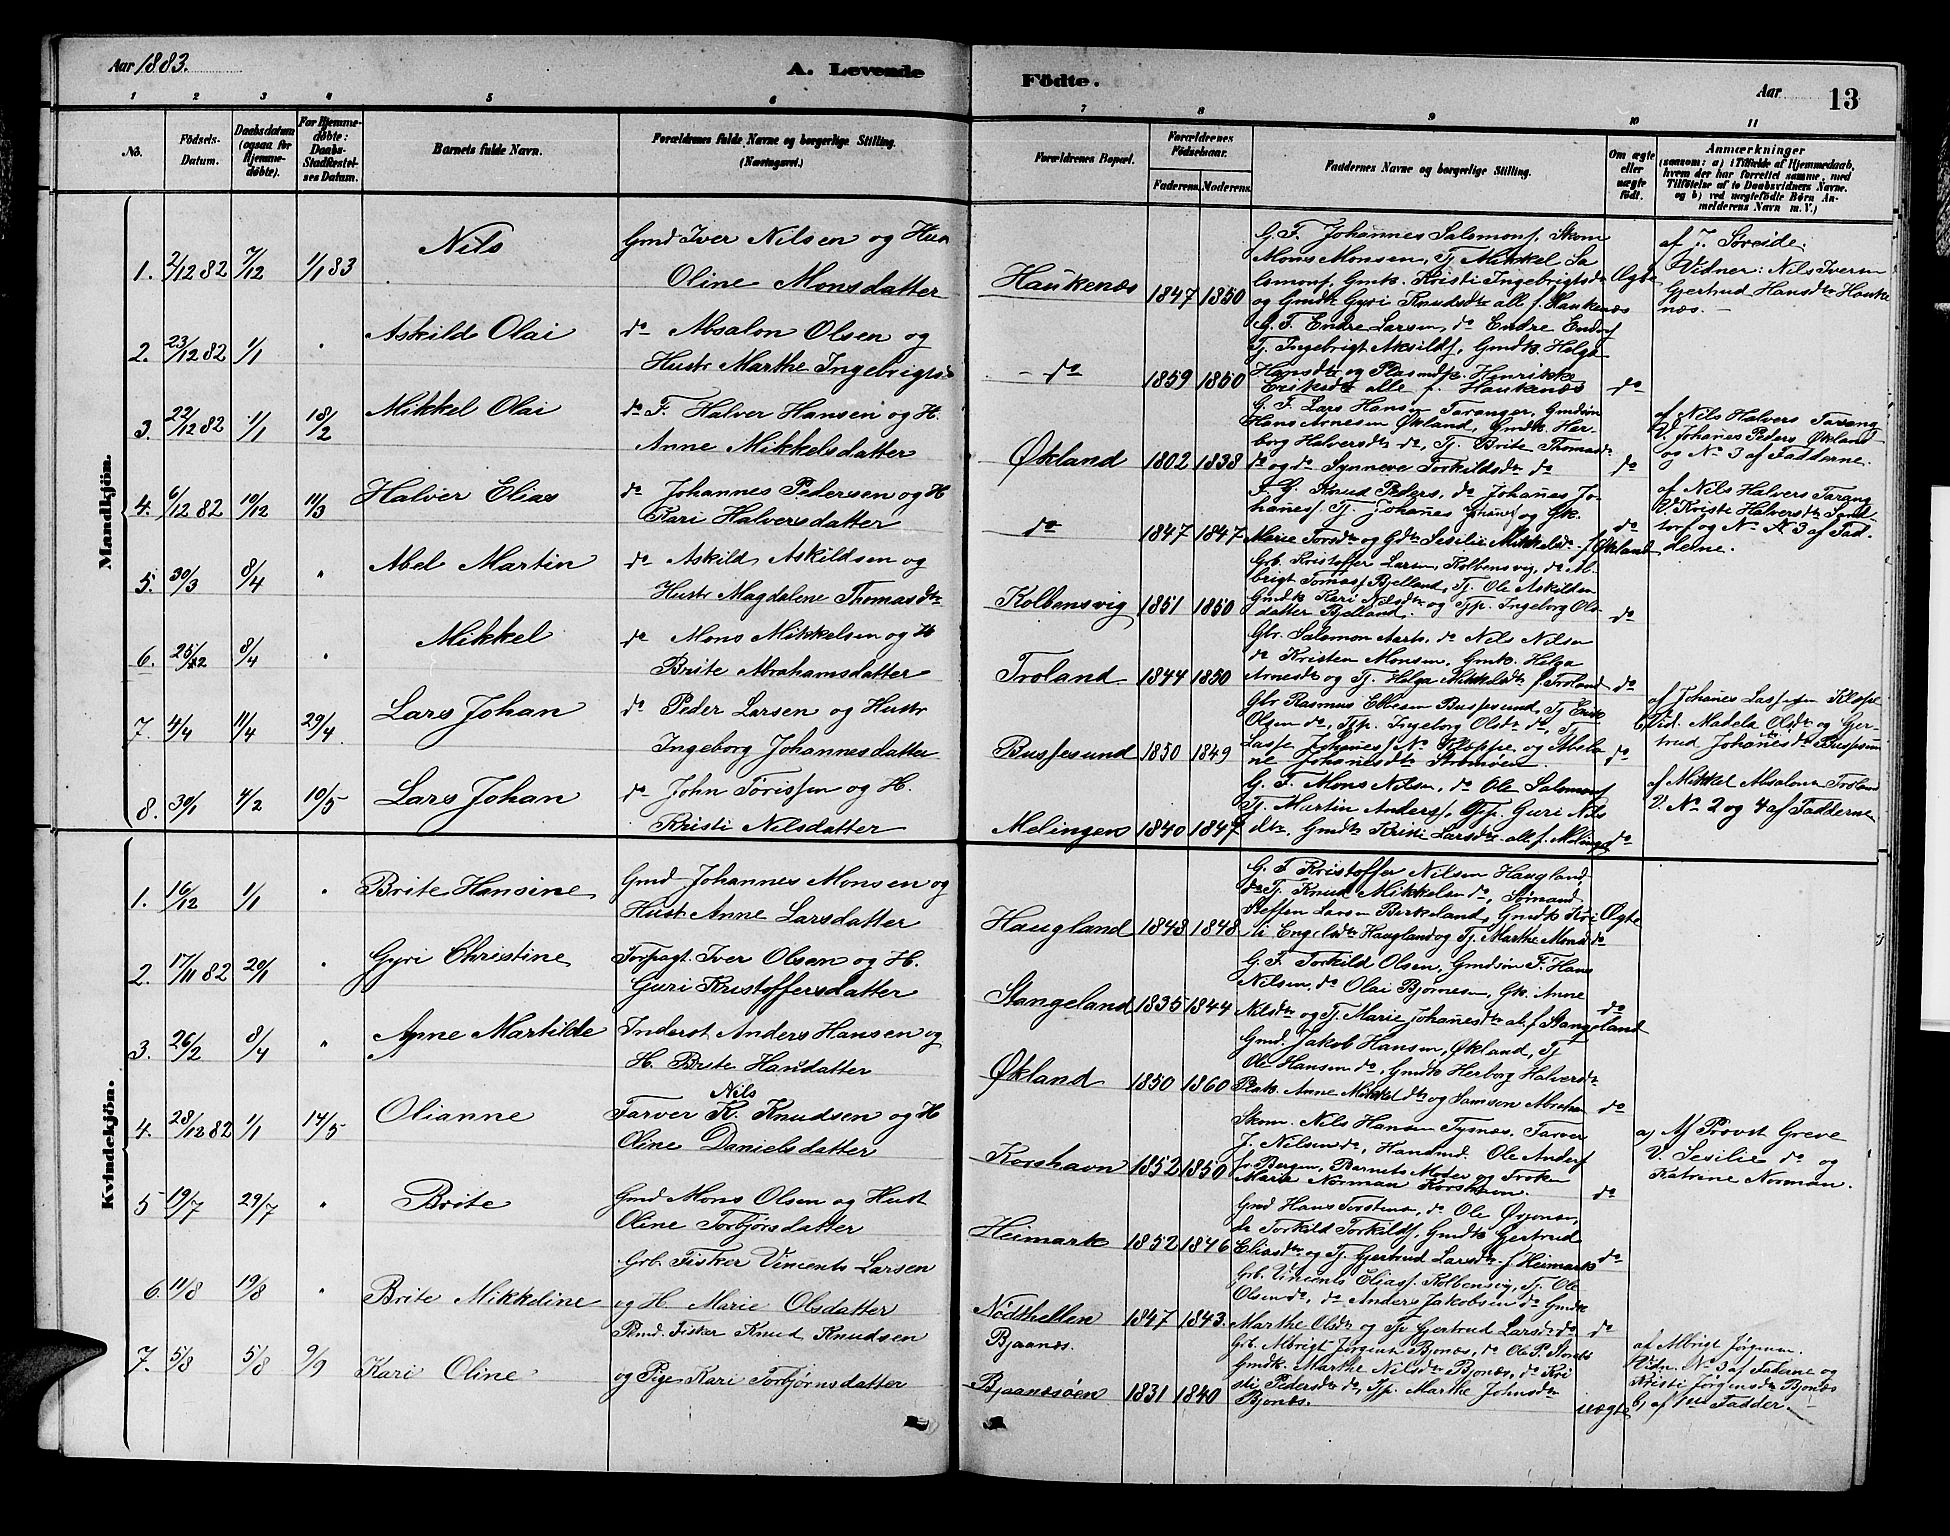 Aar 1883.
A. Levende Fødte.
Aar 13
1 2 3 4 5 6 7 8 9 10 11
No.
Födsels-Datum.
Daabsdatum (ogsaa for Hjemmedöbte).
For Hjemmedöbte: Daabs-Stadfæstelses Datum.
Barnets fulde Navn.
Forældrenes fulde Navne og borgerlige Stilling. (Næringsvei.)
Forældrenes Bopæl.
Forældrenes Födselsaar.
Faderens. Moderens.
Faddernes Navne og borgerlige Stilling.
Om ægte eller uægte födt.
Anmærkninger
(saasom: a) i Tilfælde af Hjemmedaab,
hvem der har forrettet samme, med
Tilföielse af to Daabsvidners Navne.
og b) ved uægtefödte Börn An-
melderens Navn m. V.)
Mandkjön.
1. 2/12 82 7/12 1/1 83 Nils
Gmd Iver Nilsen og Hus
Oline Monsdatter
Haukenæs 1847 1850
G. F. Johannes Salomons. Skom
Mons Monsen, Tj Mikkel Sa
lomons, Gmk. Kristi Ingebrigtsdr
og Gmdk Gyri Knudsdtr alle f. Haukenæs
Ægte
af J. Søreide.
Vidner: Nils Iversen
Gjertrud Hansdtr Hauke
næs. —
2. 23/12 82 1/1 " Askilde Olai
do Absalon Olsen og
Hustr Marthe Ingebrigts
— do 1859 1850
G. F. Endre Larsen, do Endre Ends
Tj. Ingebrigt Aksilds, Gmdk. Helga
Hansdtr og Plasmdk. Henrikke
Eriksdtr alle f. Haukenæs
do
3. 22/12 82 1/1 18/2 Mikkel Olai
do F. Halver Hansen og H.
Anne Mikkelsdatter
Økland 1802 1838
G. F. Lars Hans Taranger, Gmdsøn
Hans Arnesen Økland, Gmdk Her-
borg Halversdtr do, Tj. Brite Thomasdtr
do og do Synneve Torkildsdtr do
do
af Nils Halvers Tarang
V. Johanes Peders Økland
og No 3 af Fadderne.
4. 6/12 82 10/12 11/3 Halver Elias
do Johannes Pedersen og H
Kari Halversdatter
do 1847 1847
F. G. Knud Peders, do Johanes Jo-
hanes Tj. Johanes Johanes og Gk.
Marie Torsdtr og Gdtr Sesilie Mikkelsdr f. Økland
do
af Nils Halvers Tarang
V. Kriste Halversdtr Sand
torf og No 3 af Fad-
derne.
5. 30/3 8/4 " Abel Martin
do Askild Askildsen og
Hustr Magdalene Thomasdtr
Kolbensvig 1851 1850
Grb. Kristoffer Larsen, Kolbensvig, do Al-
brigt Tomas Bjelland, Tj. Ole Askildsen
Gmdk Kari Nilsdtr og Tjp. Ingeborg Ols-
datter Bjelland.
do
6. 25/12 8/4 " Mikkel
do Mons Mikkelsen og H
Brite Abrahamsdatter
Troland 1844 1850
Gbr. Salomon Aarh. do Nils Nilsen
do Kristen Monsen, Gmk. Helga
Arnesdtr og Tj. Helga Mikkelsdtr f. Troland
do
7. 4/4 11/4 29/4 Lars Johan
do Peder Larsen og Hustr
Ingeborg Johannesdatter
Bussesund 1850 1849
Gbr Rasmus Ellesen Bussesund, Tj Erik
Olsen do, Tjp. Ingeborg Olsdtr do, Tj
Lasse Johanes No Kloppe, og Absla
ne Johanesdtr Strømøen.
do
af Johanes Lassesen Kloppe
Vid. Madela Olsdtr og Gjer-
trud Johanesdtr Bussesun
8. 30/1 4/2 10/5 Lars Johan
do John Törissen og H.
Kristi Nilsdatter
Melingen 1840 1847
G. F. Mons Nilsen, do Ole Salomons
Tj. Martin Anders, Tjp. Guri Nils
dtr, Gmdk Kristi Larsdtr alle f. Melingen
do
af Mikkel Absalons Troland
V. No 2 og 4 af Fadderne
Kvindekjön.
1. 16/12 1/1 " Brite Hansine
Gmd Johannes Monsen og
Hust Anne Larsdatter
Haugland 1843 1848
G. F Kristoffer Nilsen Haugland,
do Tj. Knud Mikkelsen do, Sømand
Steffen Larsen Birkeland, Gmdk Kri
sti Engelsdtr Haugland og Tj. Marthe Monsd do
Ægte
2. 17/11 82 20/1 " Gyri Christine
Forpagt. Iver Olsen og H.
Guri Kristoffersdatter
Stangeland 1835 1844
G. F. Torkild Olsen, Gmdsøn F. Hans
Nilsen, do Olai Bjørnesen, Gk. Anne
Nilsdtr og Tj. Marie Johanesdtr al. f. Stangeland
do
3. 26/2 8/4 " Anne Martilde
Inderst Anders Hansen og
H. Brite Hansdatter
Økland 1850 1860
Gmd. Jakob Hansen, Økland, Tj
Ole Hansen do, Gmdk Herborg Halversdtr
Plak. Anne Mikkelsdtr og Samson Abraham
do
4. 28/12 82 1/1 14/5 Olianne
Nils
Farver K. Knudsen og H
Oline Danielsdatter
Korshavn 1852 1850
Skom. Nils Hansen Tysnæs. Farver
J. Nilsen do, Handmd. Ole Anders
fr Bergen, Barnets Moder og Frøken
Marie Norman Korshavn.
do
a) Af Provst Greve
V. Sesilie do og
Katrine Norman.
5 19/7 29/7 " Brite
Gmd Mons Olsen og Hust
Oline Torbjørsdatter
Heimark 1852 1846
Gmd Hans Torstens, do Ole Ørjansen,
do Torkild Torkilds, Gmdk Gjertrud
Eliasdtr og Tj. Gjertrud Larsdtr f. Heimark
do
6. 11/8 19/8 " Brite Mikkeline
Grb. Fisker Vincents Larsen
og H. Marie Olsdatter
Nødthellen 1847 1843.
Grb. Vincents Elias Kolbensvig, Tj. Ole
Olsen do, do Anders Jakobsen do Gmdk
Marthe Olsdtr og Tp Gjertrud Larsdtr do
do
7. 5/8 5/8 9/9 Kari Oline
Plmd. Fisker Knud Knudsen
og Pige Kari Torbjørnsdatter
Bjaanæs.
Bjaanæsøen 1831 1840
Grb. Albrigt Jørgens Bjonæs, do Ole P. Stonæs
Gmdk. Marthe Nilsdtr Bjonæs, do Kri
sti Pedersdtr do, Tjp. Marthe Johnsdtr
Bjonæs.
uægte
af Albrigt Jørgensen.
Vidn. No 3 af Fadderne og
Kristi Jørgensdtr Bjonæs
b) af 1ste Fadder.